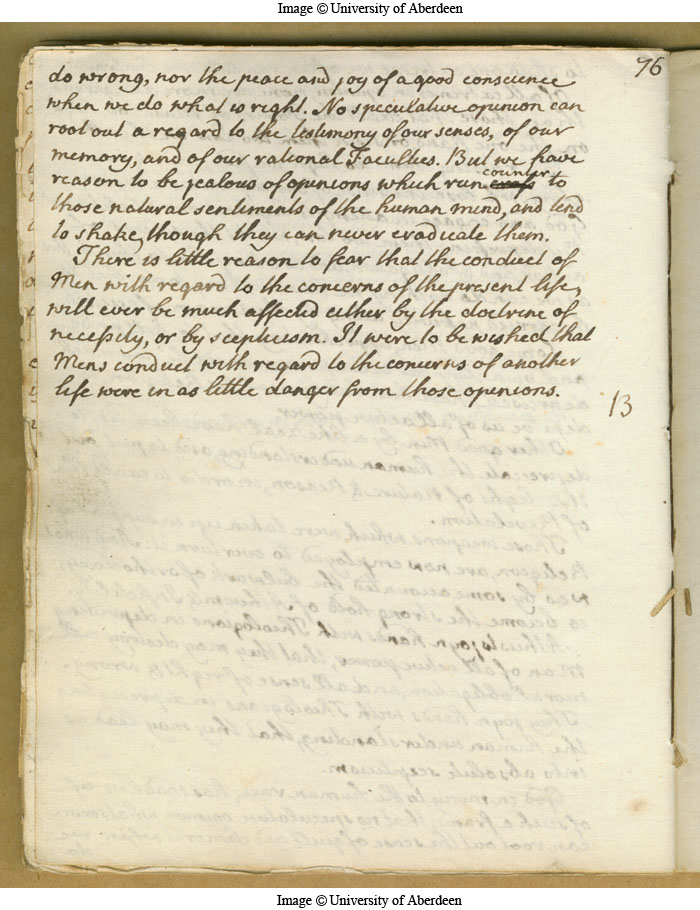 Image © University of Aberdeen
76
do wrong, nor the peace and joy of a good conscience
when we do what is right. No speculative opinion can
root out a regard to the testimony of our senses, of our
memory, and of our rational Faculties. But we have
counter
reason to be jealous of opinions which run cross to
those natural sentiments of the human mind, and tend
to shake, though they can never eradicate them.
There is little reason to fear that the conduct of
Men with regard to the concerns of the present life,
will ever be much affected either by the doctrine of
necessity, or by scepticism. It were to be wished that
Mens conduct with regard to the concerns of another
life were in as little danger from those opinions.
13
Image © University of Aberdeen